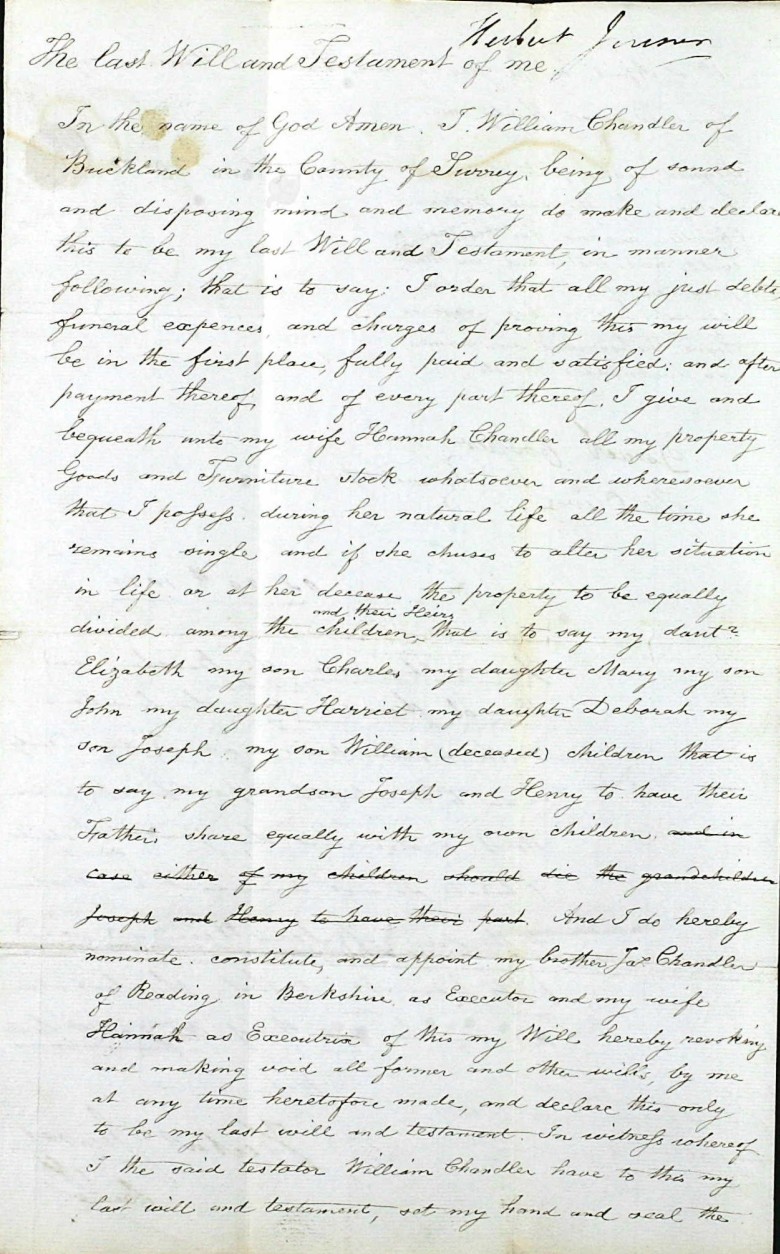 Herbert Jenner
The last Will and Testament of me
In the name of God Amen. I. William Chandler of
Buckland in the County of Surrey, being of sound
and disposing mind and memory do make and declare
this to be my last Will and Testament, in manner
following; that is to say; I order that all my just debts
funeral expences, and charges of proving this my will
be in the first place, fully paid and satisfied: and after
payment thereof, and of every part thereof. I give and
bequeath unto my wife Hannah Chandler all my property
Goods and Furniture stock whatsoever and wheresoever
that I possess during her natural life all the time she
remains single and if she chuses to alter her situation
in life or at her decease the property to be equally
and their Heirs
divided among the children, that is to say my daut.r
Elizabeth my son Charles my daughter Mary my son
John my daughter Harriet my daughter Deborah my
son Joseph my son William (deceased) children that is
to say my grandson Joseph and Henry to have their
Father's share equally with my own children. and in
case either of my children should die the grandchildren
Joseph and Henry to have their part. And I do hereby
nominate. constitute, and appoint my brother Jas Chandler
of Reading in Berkshire as Executor and my wife
Hannah as Executrix of this my Will hereby revoking
and making void all former and other wills, by me
at any time heretofore made, and declare this only
to be my last will and testament. In witness whereof
I the said testator William Chandler have to this my
last will and testament, set my hand and seal the